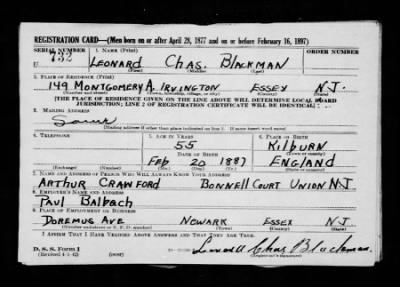 REGISTRATION CARD—(Men born on or after April 28, 1877 and on or before February 16, 1897)
SERIAL NUMBER 1. NAME (Print) ORDER NUMBER
U 732 LEONARD CHAS. BLACKMAN
(First) (Middle) (Last)
2. PLACE OF RESIDENCE (Print)
149 MONTGOMERY A. IRVINGTON ESSEX N.J.
(Number and street) (Town, township, village, or city) (County) (State)
[THE PLACE OF RESIDENCE GIVEN ON THE LINE ABOVE WILL DETERMINE LOCAL BOARD
JURISDICTION; LINE 2 OF REGISTRATION CERTIFICATE WILL BE IDENTICAL]
3. MAILING ADDRESS
Same
[Mailing address if other than place indicated on line 2. If same insert word same]
4. TELEPHONE 5. AGE IN YEARS 6. PLACE OF BIRTH
55 KILBURN
DATE OF BIRTH (Town or county)
Feb 20 1887 ENGLAND
(Exchange) (Number) (Mo.) (Day) (Yr.) (State or country)
7. NAME AND ADDRESS OF PERSON WHO WILL ALWAYS KNOW YOUR ADDRESS
ARTHUR CRAWFORD BONNELL COURT UNION N.J.
8. EMPLOYER'S NAME AND ADDRESS
PAUL BALBACH
9. PLACE OF EMPLOYMENT OR BUSINESS
DOREMUS AVE NEWARK ESSEX N.J.
(Number and street or R. F. D. number) (Town) (County) (State)
I AFFIRM THAT I HAVE VERIFIED ABOVE ANSWERS AND THAT THEY ARE TRUE.
D. S. S. Form 1
(Revised 4-1-42) (over) Leonard Chas Blackman
(Registrant's signature)